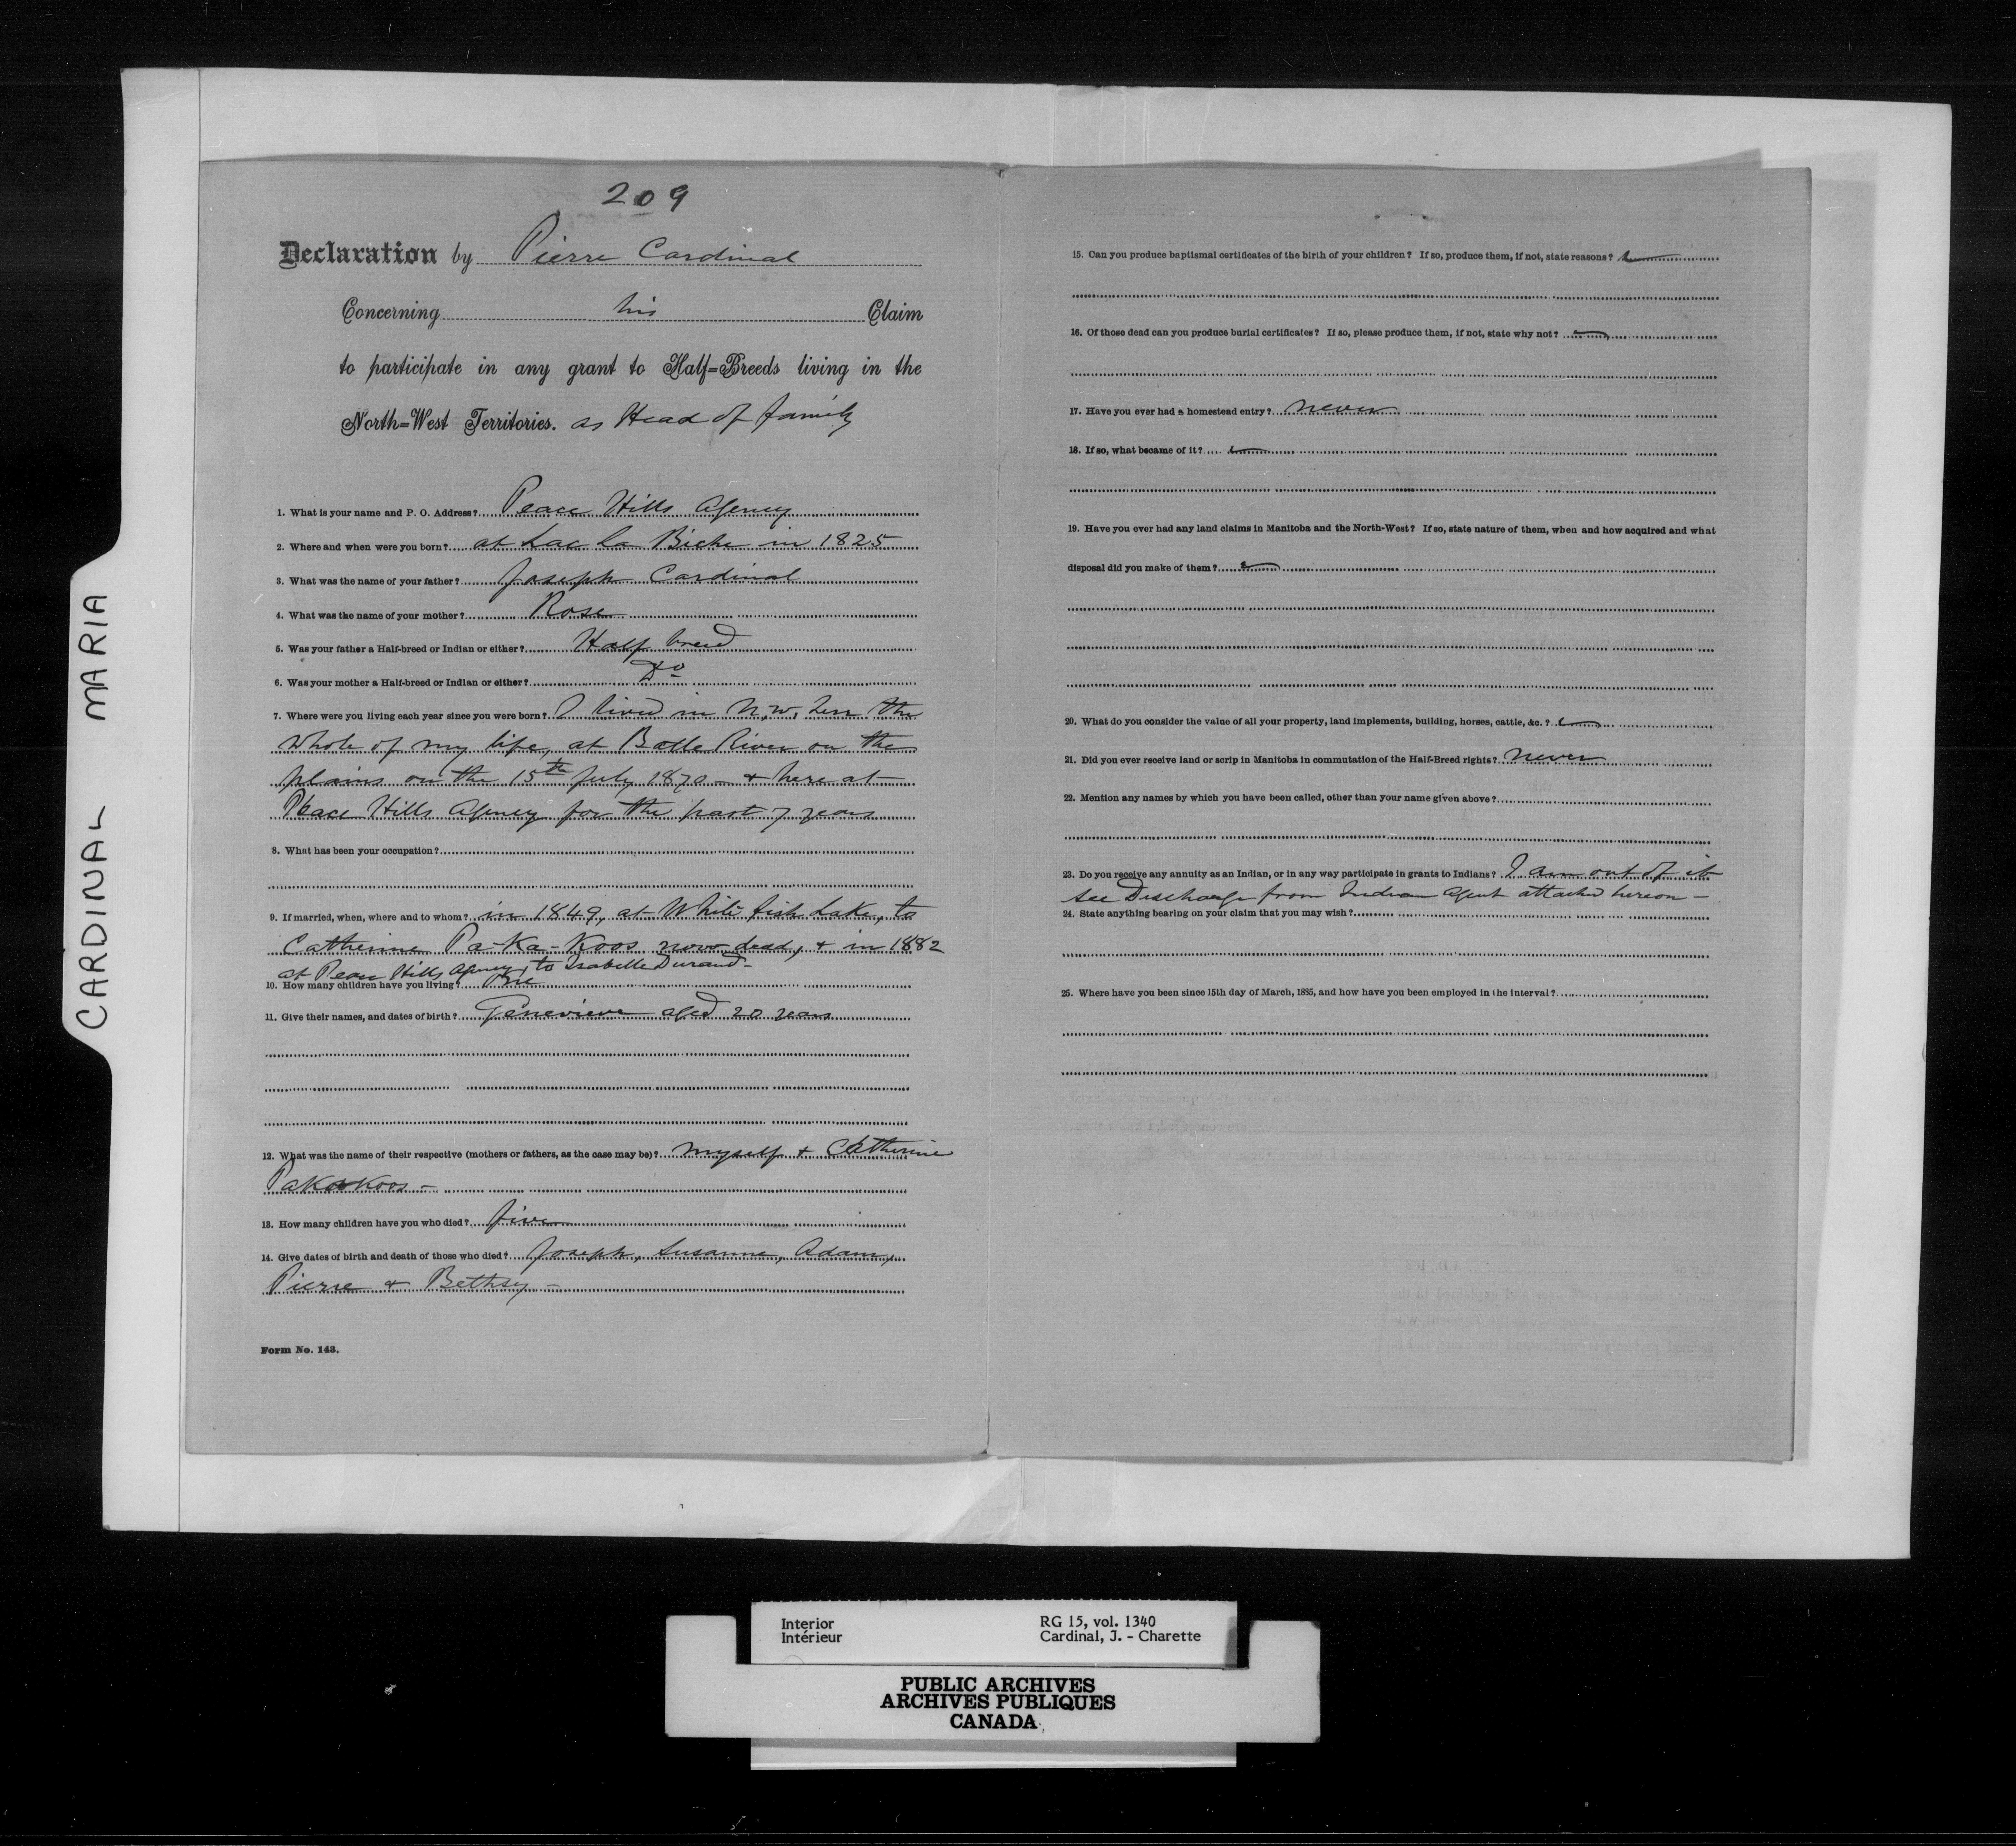 CARDINAL MARIA
209
Declaration by Pierre Cardinal
Concerning his Claim
to participate in any grant to Half=Breeds living in the
North=West Territories. as Head of family
1. What is your name and P. O. Address? Peace Hills Agency
2. Where and when were you born? at Lac la Biche in 1825
3. What was the name of your father? Joseph Cardinal
4. What was the name of your mother? Rose
5. Was your father a Half-breed or Indian or either? Half breed
6. Was your mother a Half-breed or Indian or either? Do
7. Where were you living each year since you were born? I lived in N.W. Terr the
whole of my life, at Batle River on the
plains on the 15th July 1870 - & here at
Peace Hills Agency for the past 7 years
8. What has been your occupation?
9. If married, when, where and to whom? in 1849, at White fish Lake, to
Catherine Pa-Ka-Koos now dead, & in 1882
at Peace Hills Agency, to Isabelle Durand -
10. How many children have you living? One
11. Give their names, and dates of birth? Genevieve aged 20 years
12. What was the name of their respective (mothers or fathers, as the case may be)? myself & Catherine
Pakakoos -
13. How many children have you who died? five
14. Give dates of birth and death of those who died? Joseph, Susanne, Adam,
Pierre & Bethsy -
Form No. 143.
15. Can you produce baptismal certificates of the birth of your children? If so, produce them, if not, state reasons?
16. Of those dead can you produce burial certificates? If so, please produce them, if not, state why not?
17. Have you ever had a homestead entry? never
18. If so, what became of it?
19. Have you ever had any land claims in Manitoba and the North-West? If so, state nature of them, when and how acquired and what
disposal did you make of them?
20. What do you consider the value of all your property, land implements, building, horses, cattle, &c.?
21. Did you ever receive land or scrip in Manitoba in commutation of the Half-Breed rights? never
22. Mention any names by which you have been called, other than your name given above?
23. Do you receive any annuity as an Indian, or in any way participate in grants to Indians? I am out of it
see Discharge from Indian Agent attached hereon -
24. State anything bearing on your claim that you may wish?
25. Where have you been since 15th day of March, 1885, and how have you been employed in the interval?
Interior RG 15, vol. 1340
Intérieur Cardinal, J. - Charette
PUBLIC ARCHIVES
ARCHIVES PUBLIQUES
CANADA